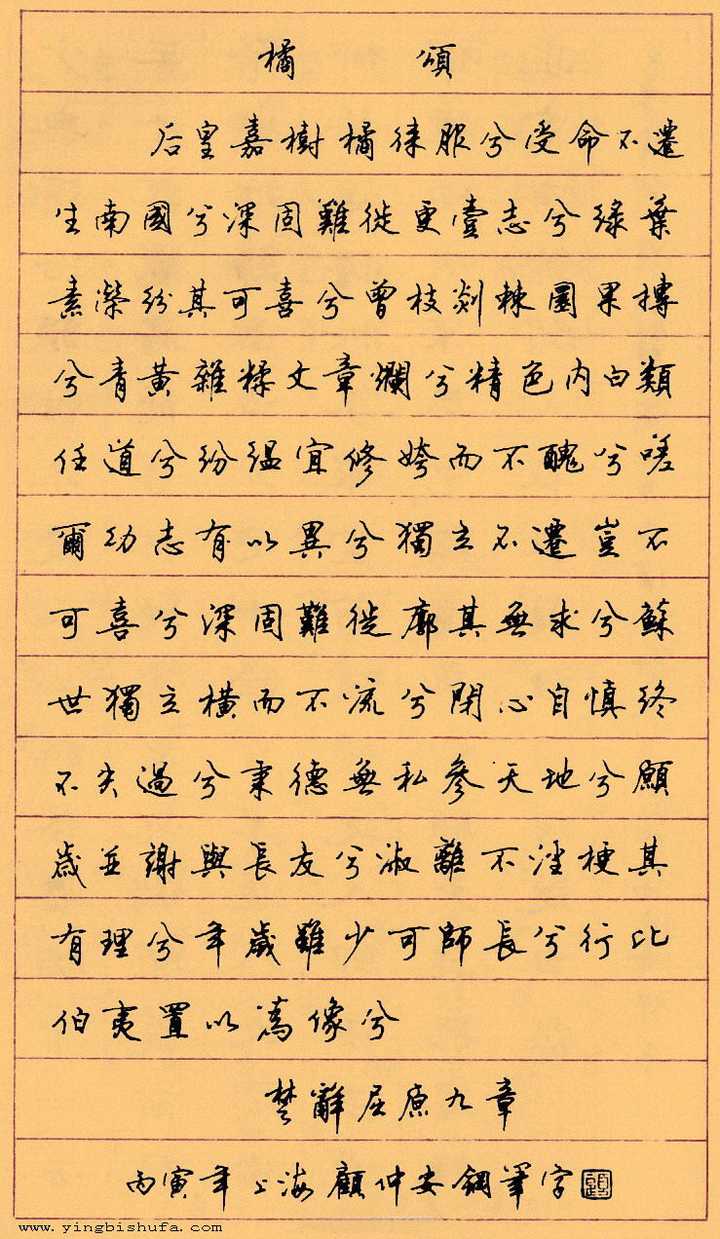 橘頌
后皇嘉樹橘徠服兮受命不遷
生南國兮深固難徙更壹志兮綠葉
素榮紛其可喜兮曾枝剡棘圜果摶
兮青黃雜糅文章爛兮精色內白類
任道兮紛緼宜修姱而不醜兮嗟
爾幼志有以異兮獨立不遷豈不
可喜兮深固難徙廓其無求兮蘇
世獨立橫而不流兮閉心自慎終
不失過兮秉德無私參天地兮願
歲並謝與長友兮淑離不淫梗其
有理兮年歲雖少可師長兮行比
伯夷置以為像兮
楚辭屈原九章
丙寅年上海顧仲安鋼筆字
www.yingbishufa.com